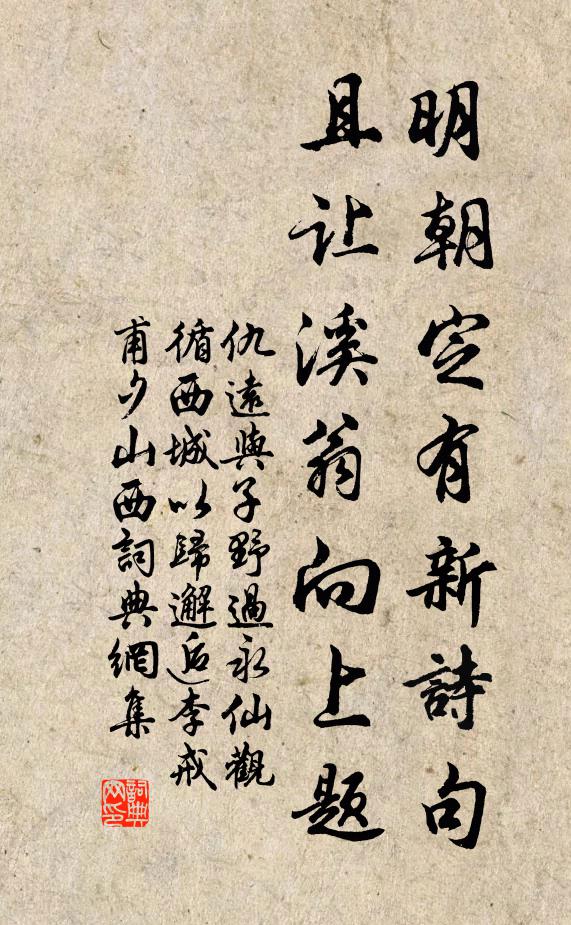 明朝定有新詩句
且让溪翁向上题
仇遠與子野過永仙觀
循西城以歸邂逅李戒
甫夕山西詞典網集
詞典网印